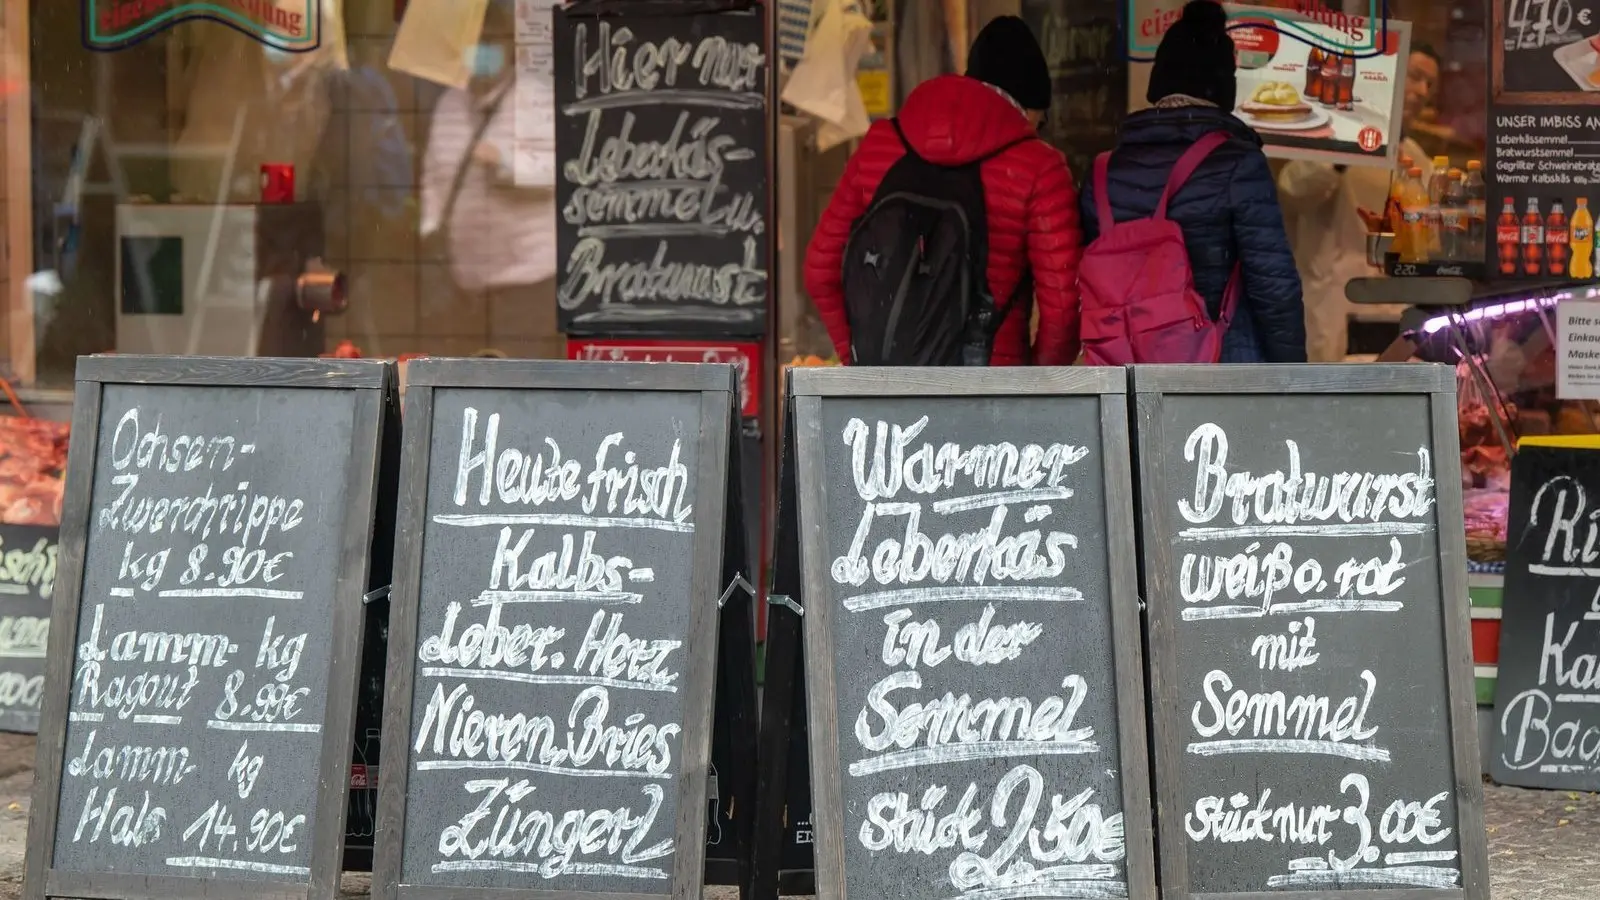 Hier nur
Leberkäs-
semmel u.
Bratwurst
470 €
UNSER IMBISS AN
Leberkässemmel
Bratwurstsemmel
Gegrillter Schweinebraten
Warmer Kalbskäs
2.20
Bitte
Einkau
Maske
Ochsen-
Zwerchrippe
kg 8.90€
Lamm- kg
Ragout 8.99€
Lamm- kg
Hals 14.90€
Heute frisch
Kalbs-
Leber. Herz
Nieren. Bries
Züngerl
Warmer
Leberkäs
in der
Semmel
Stück 2.50€
Bratwurst
weiß o. rot
mit
Semmel
Stück nur 3.00€